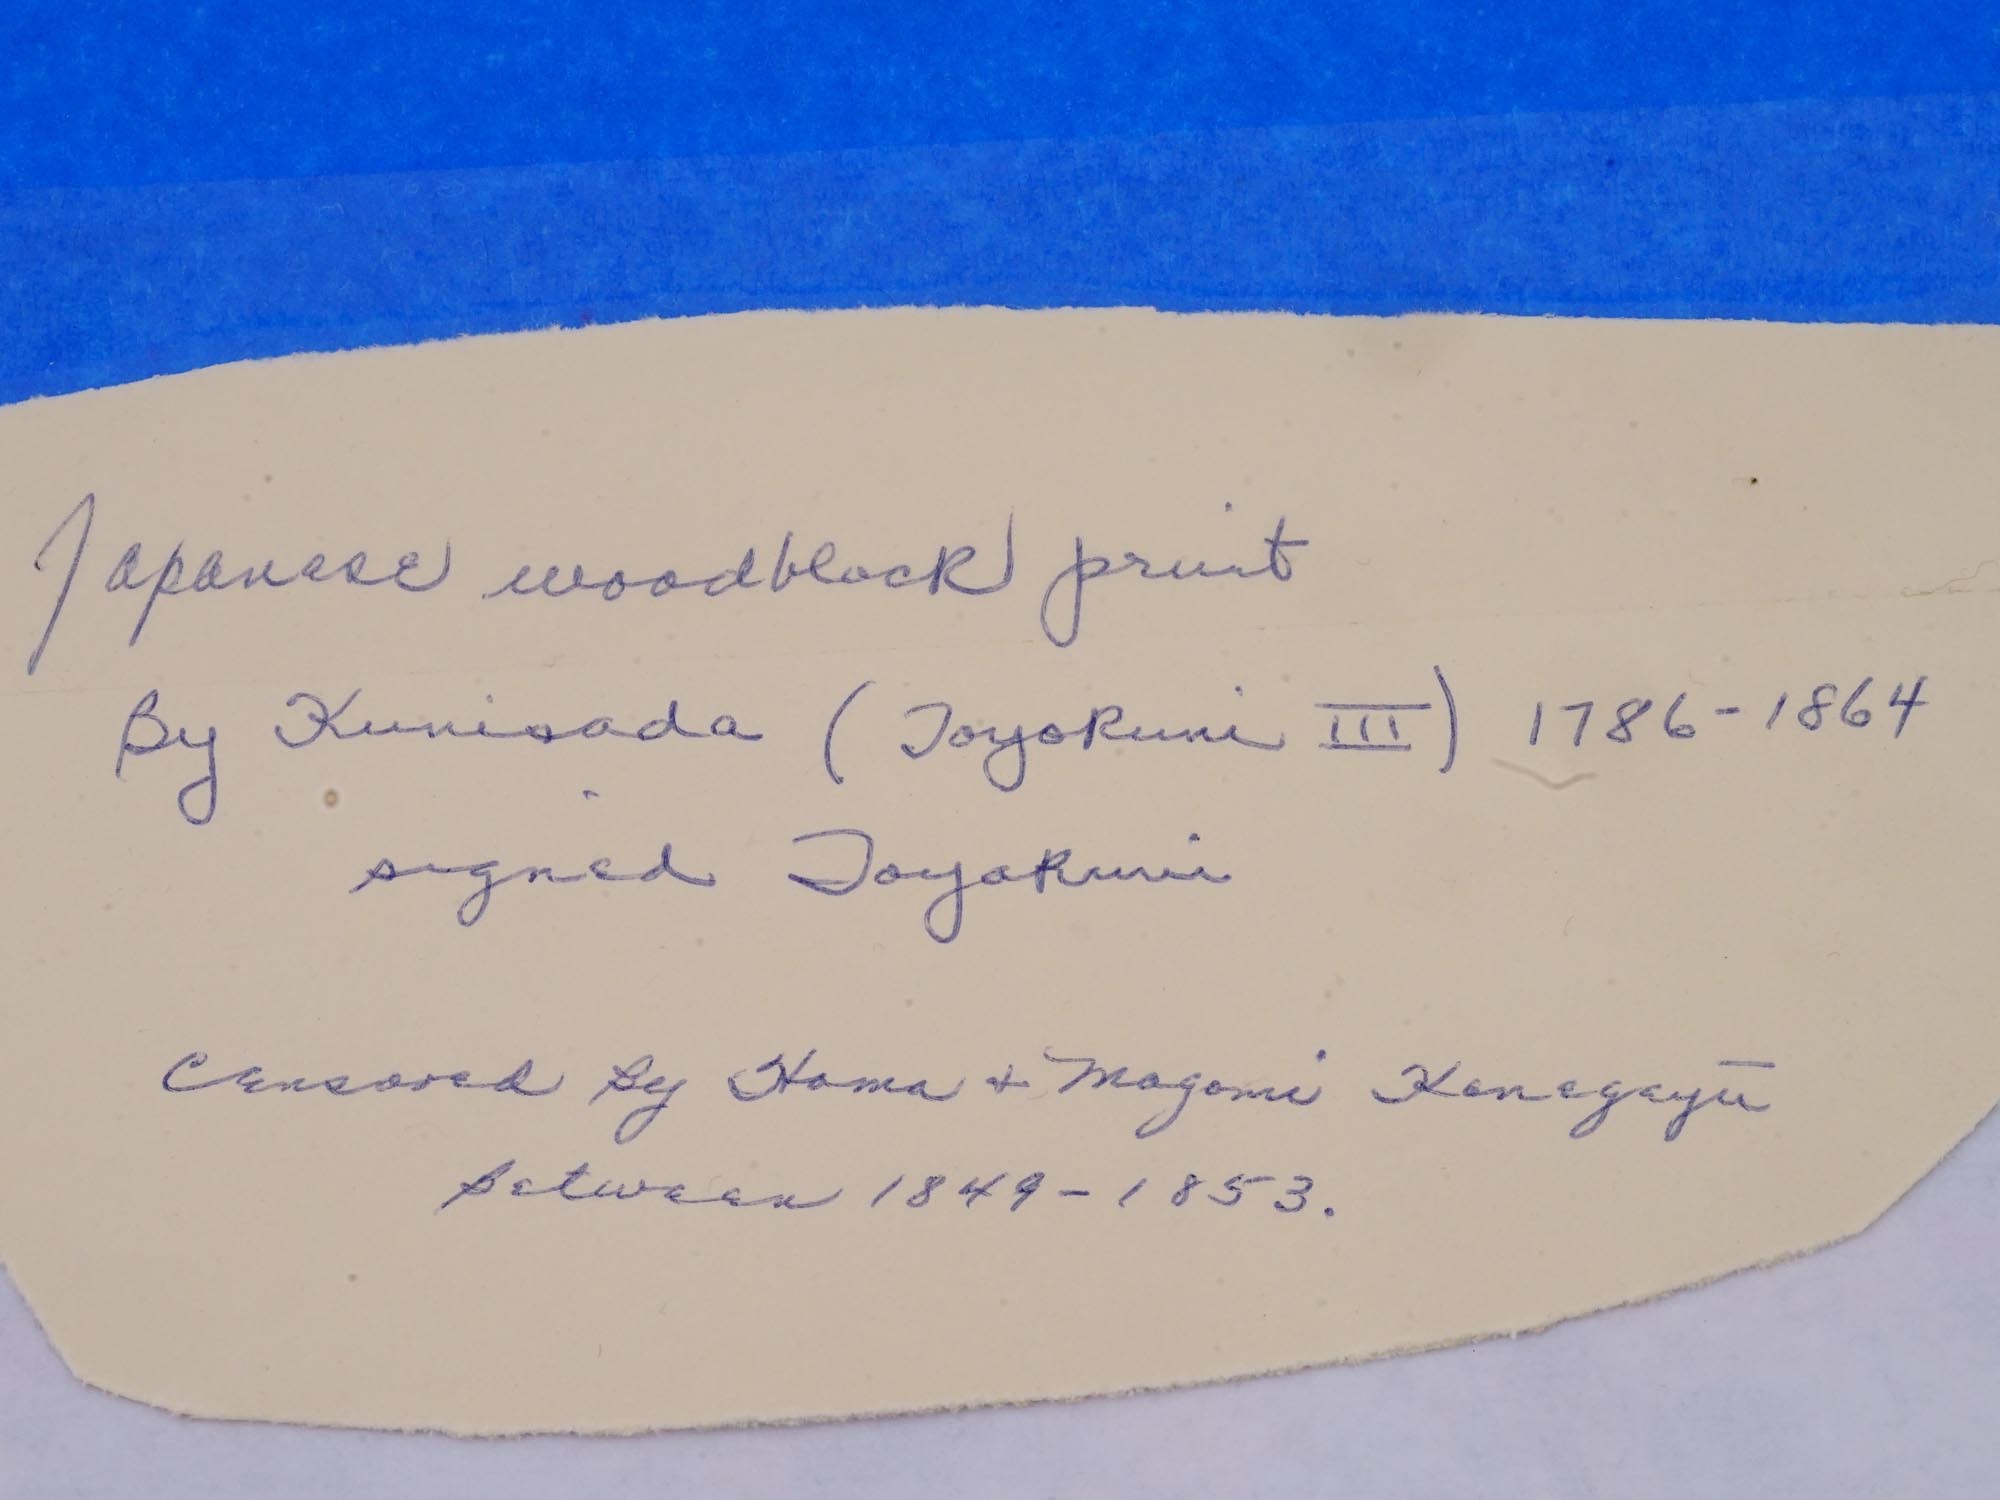 Japanese woodblock print
By Kunisada (Toyokuni III) 1786-1864
signed Toyokuni
Censored by Hama + Magomi Kenegeyū
between 1849-1853.